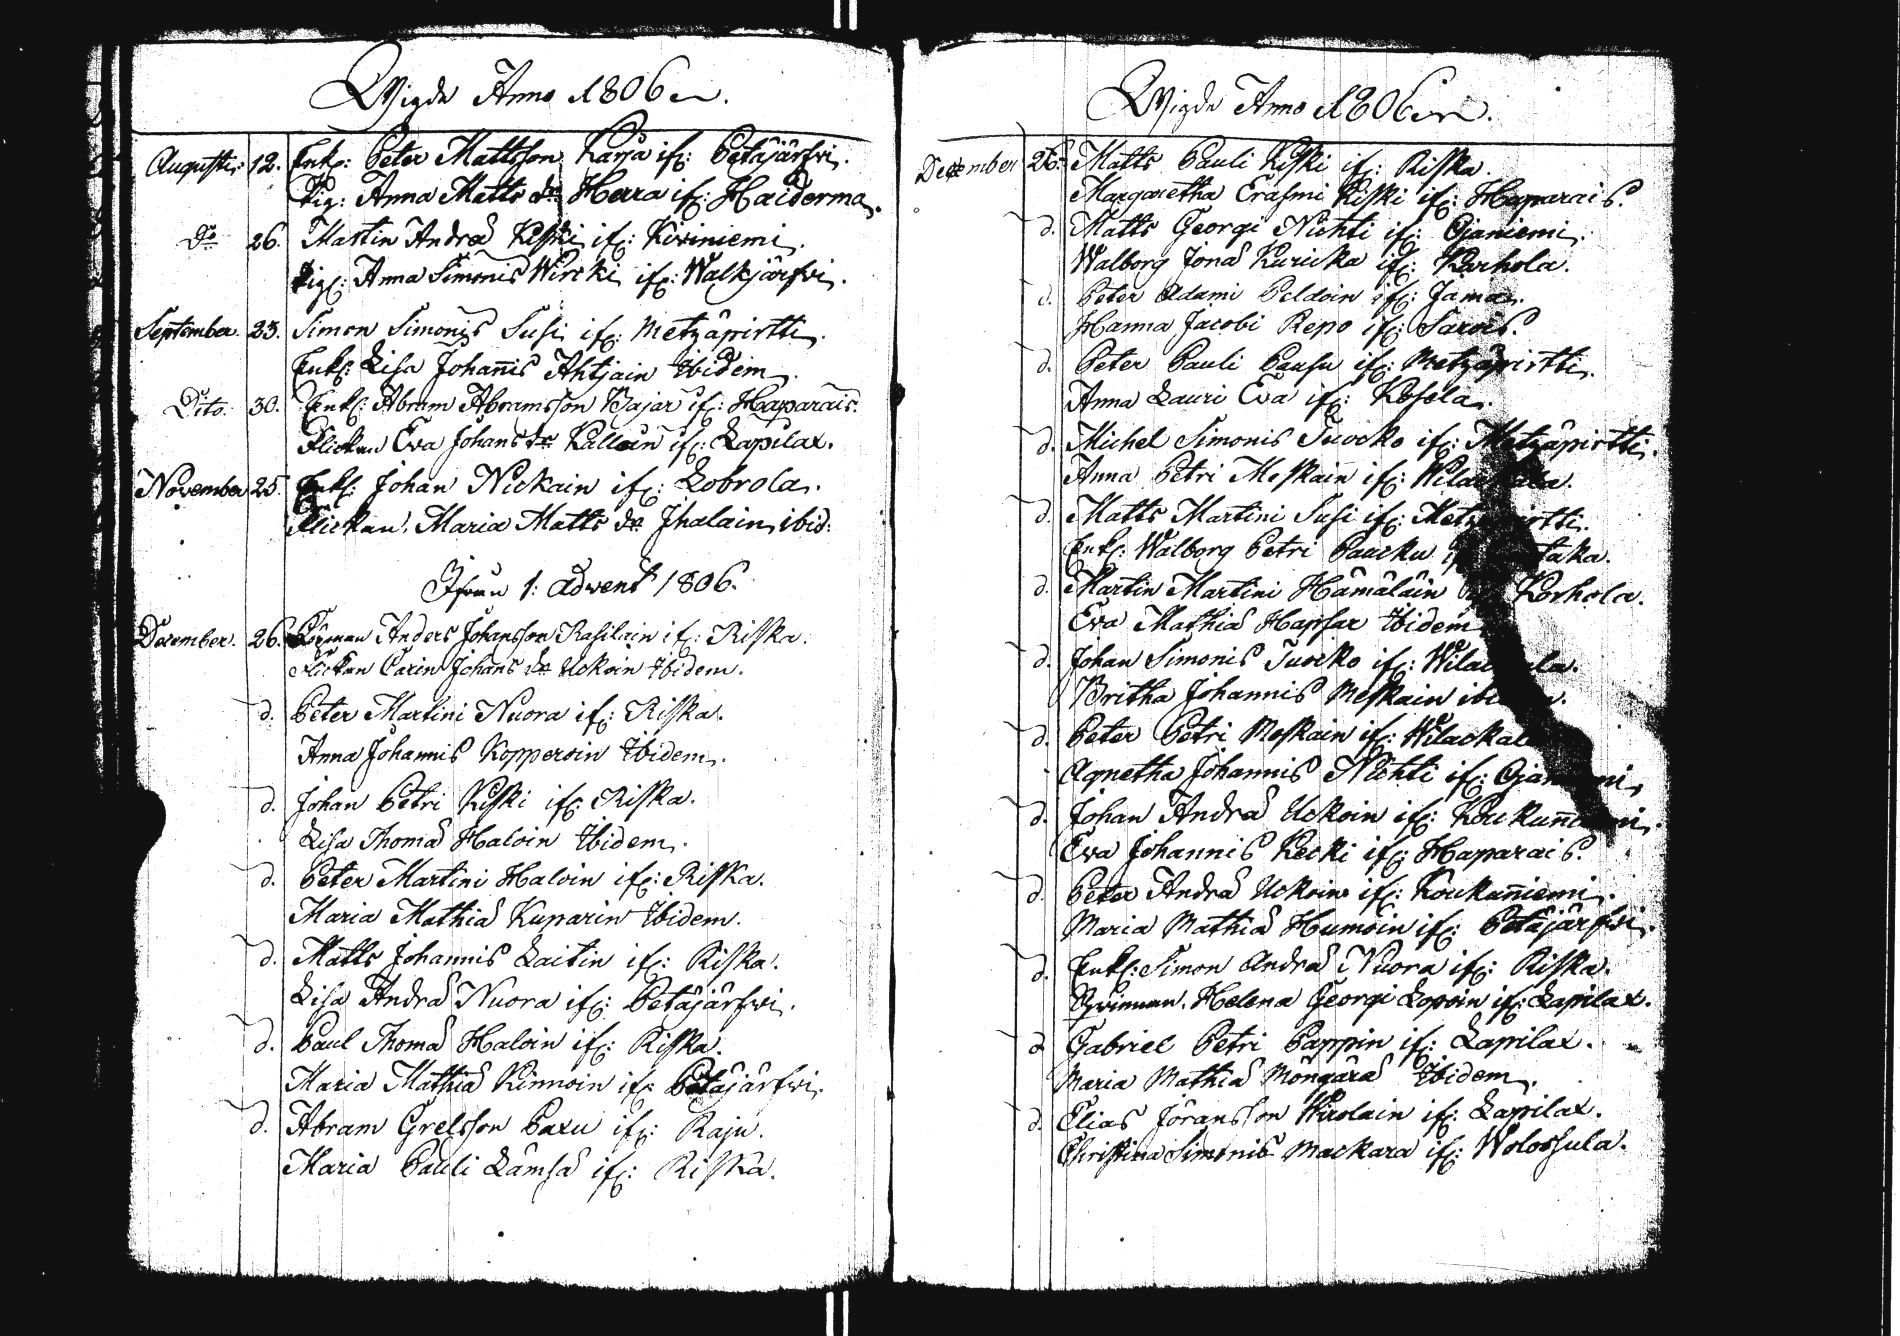 Wigde Anno 1806
Augusti: 12. Enkl: Peter Mattsson Karja ifr: Petäjärfwi.
Pig: Anna Matts dr Herra ifr: Haiderma.
Do 26. Martin Andreæ Kiski ifr: Kiviniemi.
Pig: Anna Simonis Wircki ifr: Walkjärfwi.
September. 23. Simon Simonis Susi ifr: Metzäpirtti.
Enkl: Lisa Johannis Ahtjain Ibidem.
Dito. 30. Enkl: Abram Abramsson Bajar ifr: Haparais.
Flickan Eva Johans dr Kalloin ifr: Lapilax.
November 25. Enkl: Johan Nickain ifr: Lobrola.
Flickan. Maria Matts dr Jhalain, ibid:
Ifrån 1: Advent 1806.
December. 26. Anders Johansson Rasilain if: Riska.
Flickan Carin Johans dr Uckoin Ibidem.
d. Peter Martini Nuora ifr: Riska.
Anna Johannis Kopperoin Ibidem.
d. Johan Petri Kiski ifr: Riska.
Lisa Thomæ Haloin Ibidem.
d. Peter Martini Haloin ifr: Riska.
Maria Mathiæ Kuparin Ibidem.
d. Matts Johannis Laitin ifr: Riska.
Lisa Andreæ Nuora ifr: Petäjärfwi.
d. Paul Thomæ Haloin ifr: Riska.
Maria Mathiæ Kinnoin ifr Petäjärfwi.
d. Abram Grelsson Paxu ifr: Raju.
Maria Pauli Lämsä ifr: Riska.
Wigde Anno 1806
December 26. Matts Pauli Kiski ifr: Riska.
Margaretha Erasmi Kiski ifr: Haparais.
d. Matts Georgi Nichti ifr: Ojaniemi.
Walborg Jonæ Kuricka ifr: Karhola.
d. Peter Adami Peldoin ifr: Jama.
Hanna Jacobi Repo ifr: Sarois.
d. Peter Pauli Pausu ifr: Metzäpirtti.
Anna Lauri Eva ifr: Kosela.
d. Michel Simonis Tuocko ifr: Metzäpirtti.
Anna Petri Meskain ifr:
d. Matts Martini Susi ifr: Metzäpirtti.
Enkl: Walborg Petri Paacku
d. Martin Martini Hämäläin Korhola.
Eva Mathiæ Hapsar Ibidem
d. Johan Simonis Tuocko ifr:
Britha Johannis Meskain
d. Peter Petri Meskain ifr: Wilackala
Agnetha Johannis Nichti ifr: Ojaniemi.
d. Johan Andreæ Uckoin ifr: Koukunniemi.
Eva Johannis Kecki ifr: Haparais.
d. Peter Andreæ Uckoin ifr: Koukunniemi.
Maria Mathiæ Humoin ifr: Petäjärfwi.
d. Enkl: Simon Andreæ Nuora ifr: Riska.
Qwinnan. Helena Georgi Lopoin ifr: Lapilax.
d. Gabriel Petri Pappin ifr: Lapilax.
Maria Mathiæ Möngäræ Ibidem.
d. Elias Jöransson Wirolain ifr: Lapilax.
Christina Simonis Mackara ifr: Wolossula.